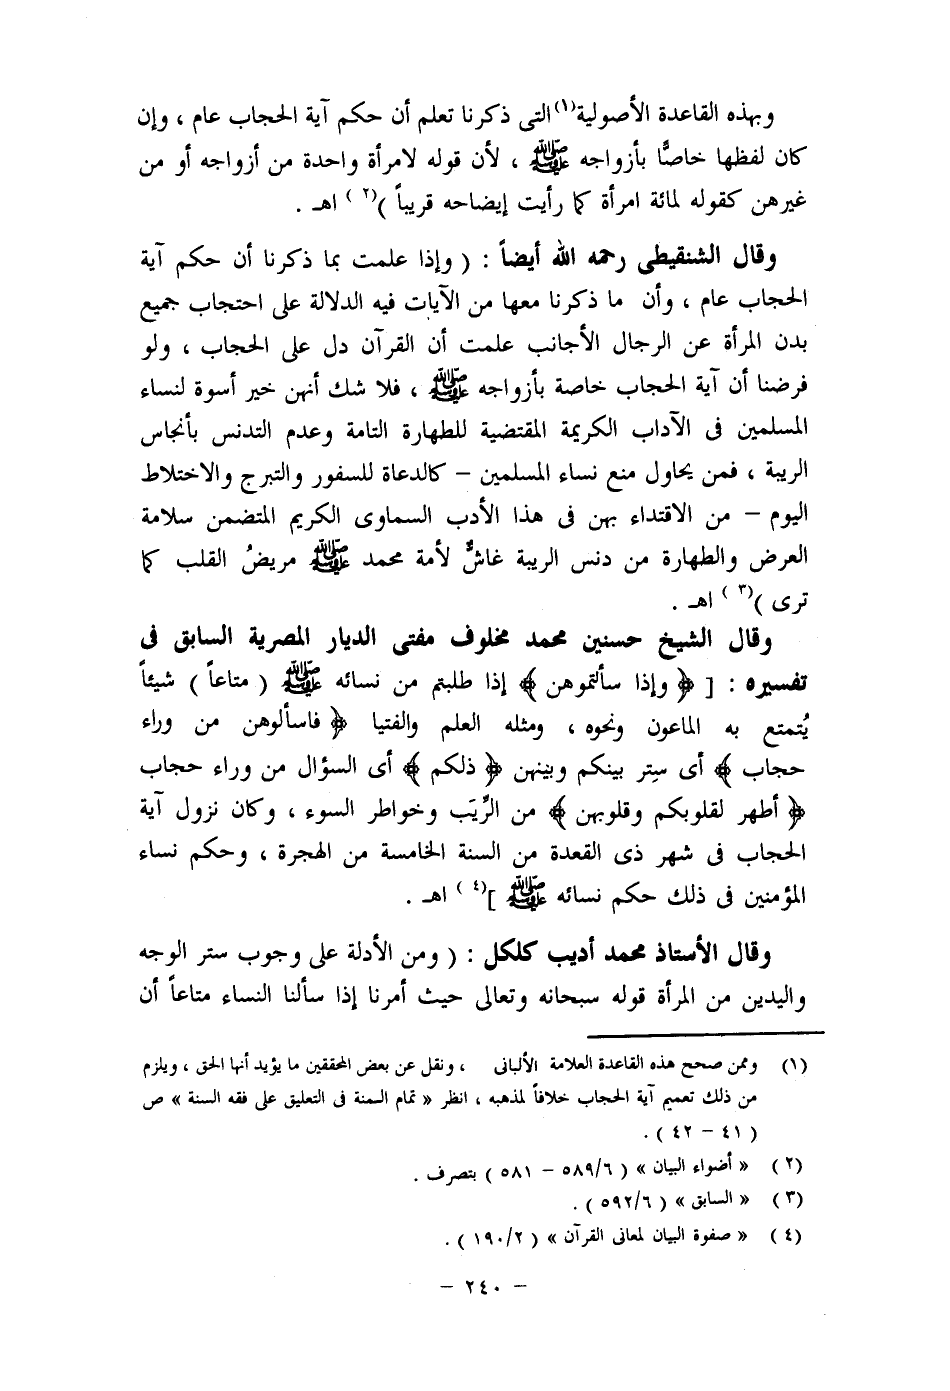 وبهذه القاعدة الأصولية(١) التى ذكرنا تعلم أن حكم آية الحجاب عام ، وإن
كان لفظها خاصًّا بأزواجه ﷺ ، لأن قوله لامرأة واحدة من أزواجه أو من
غيرهن كقوله لمائة امرأة كما رأيت إيضاحه قريباً )(٢) اهـ .
وقال الشنقيطى رحمه الله أيضاً : ( وإذا علمت بما ذكرنا أن حكم آية
الحجاب عام ، وأن ما ذكرنا معها من الآيات فيه الدلالة على احتجاب جميع
بدن المرأة عن الرجال الأجانب علمت أن القرآن دل على الحجاب ، ولو
فرضنا أن آية الحجاب خاصة بأزواجه ﷺ ، فلا شك أنهن خير أسوة لنساء
المسلمين فى الآداب الكريمة المقتضية للطهارة التامة وعدم التدنس بأنجاس
الريبة ، فمن يحاول منع نساء المسلمين – كالدعاة للسفور والتبرج والاختلاط
اليوم – من الاقتداء بهن فى هذا الأدب السماوى الكريم المتضمن سلامة
العرض والطهارة من دنس الريبة غاشٌّ لأمة محمد ﷺ مريضُ القلب كما
ترى )(٣) اهـ .
وقال الشيخ حسنين محمد مخلوف مفتى الديار المصرية السابق فى
تفسيره : [ ﴿ وإذا سألتموهن ﴾ إذا طلبتم من نسائه ﷺ ( متاعاً ) شيئاً
يُتمتع به الماعون ونحوه ، ومثله العلم والفتيا ﴿ فاسألوهن من وراء
حجاب ﴾ أى سِتر بينكم وبينهن ﴿ ذلكم ﴾ أى السؤال من وراء حجاب
﴿ أطهر لقلوبكم وقلوبهن ﴾ من الرِّيَب وخواطر السوء ، وكان نزول آية
الحجاب فى شهر ذى القعدة من السنة الخامسة من الهجرة ، وحكم نساء
المؤمنين فى ذلك حكم نسائه ﷺ ](٤) اهـ .
وقال الأستاذ محمد أديب كلكل : ( ومن الأدلة على وجوب ستر الوجه
واليدين من المرأة قوله سبحانه وتعالى حيث أمرنا إذا سألنا النساء متاعاً أن
(١) وممن صحح هذه القاعدة العلامة الألبانى ، ونقل عن بعض المحققين ما يؤيد أنها الحق ، ويلزم
من ذلك تعميم آية الحجاب خلافاً لمذهبه ، انظر « تمام المنة فى التعليق على فقه السنة » ص
( ٤١ – ٤٢ ) .
(٢) « أضواء البيان » ( ٥٨٩/٦ – ٥٨١ ) بتصرف .
(٣) « السابق » ( ٥٩٢/٦ ) .
(٤) « صفوة البيان لمعانى القرآن » ( ١٩٠/٢ ) .
– ٢٤٠ –